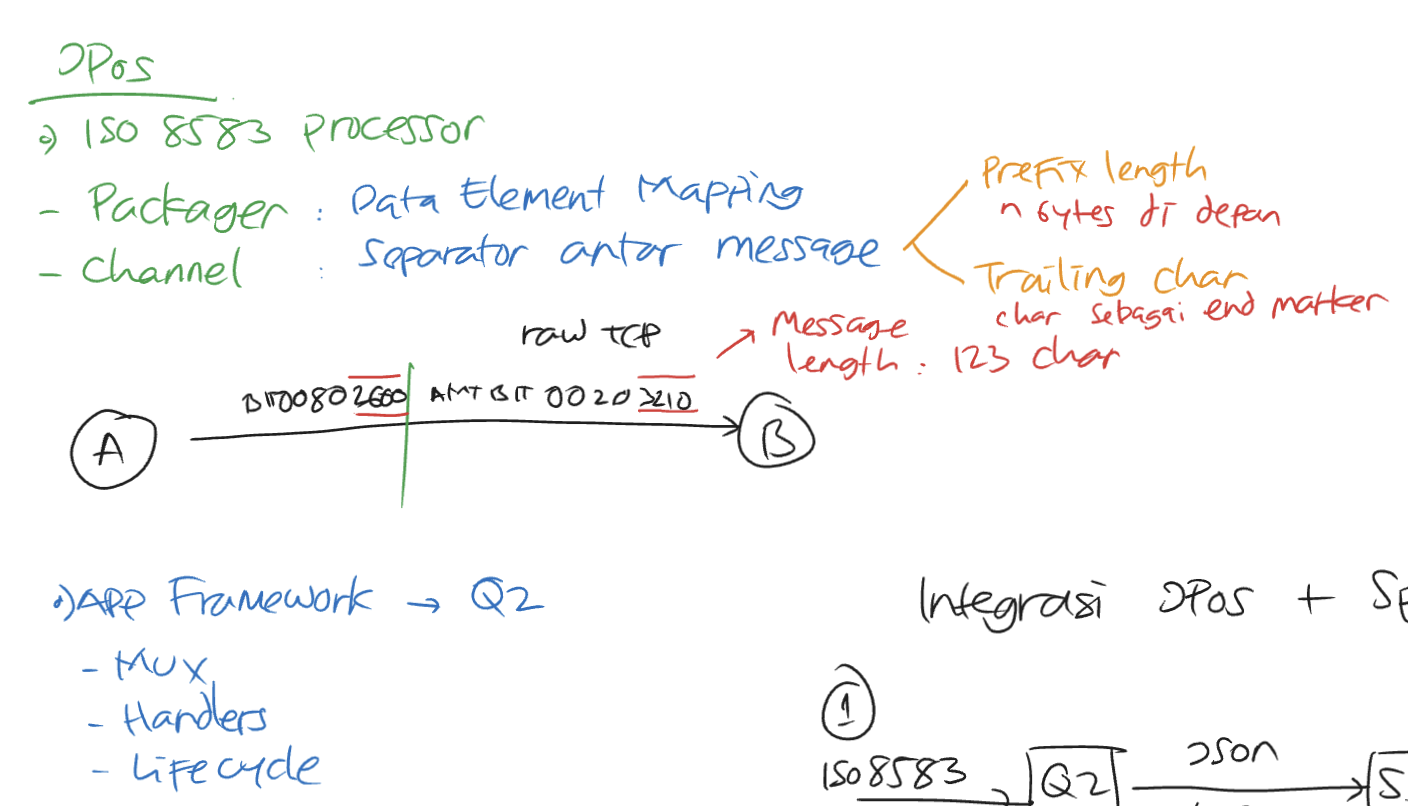 JPos
ISO 8583 Processor
- Packager : Data Element Mapping
- Channel : Separator antar message
Prefix length
n bytes di depan
Trailing char
char sebagai end marker
raw TCP
Message
length : 123 char
A
B
APP Framework → Q2
- MUX
- Handlers
- Lifecycle
Integrasi JPos +
1
ISO 8583
Q2
JSON